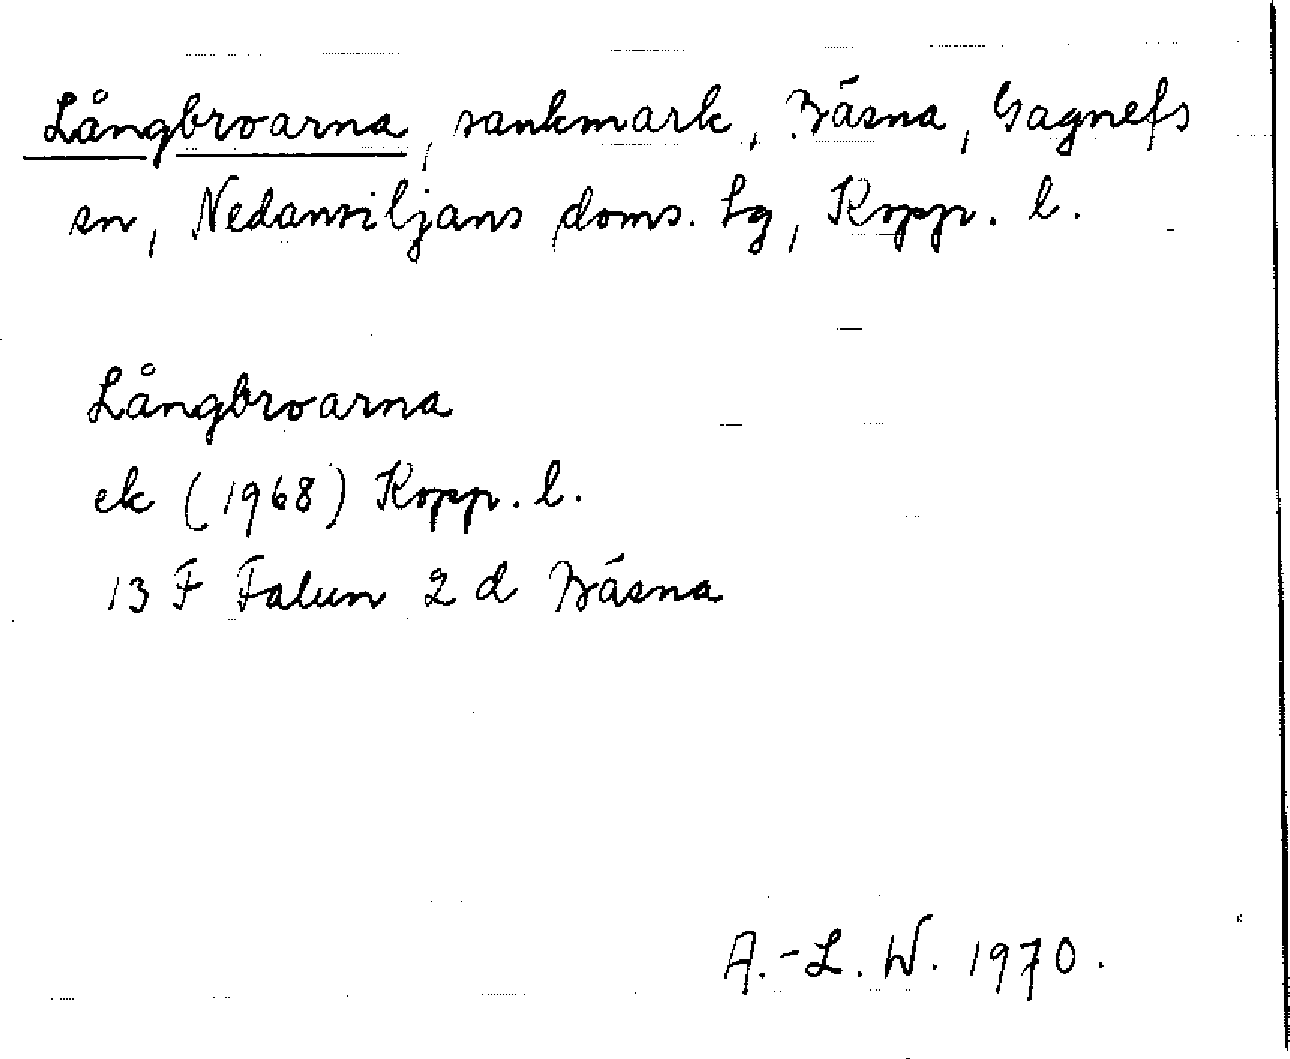 Långbroarna, sankmark, Bäsna, Gagnefs
sn, Nedansiljans doms. tg, Kopp. l.
Långbroarna
ek (1968) Kopp. l.
13 F Falun 2 d Bäsna
A.-L. W. 1970.